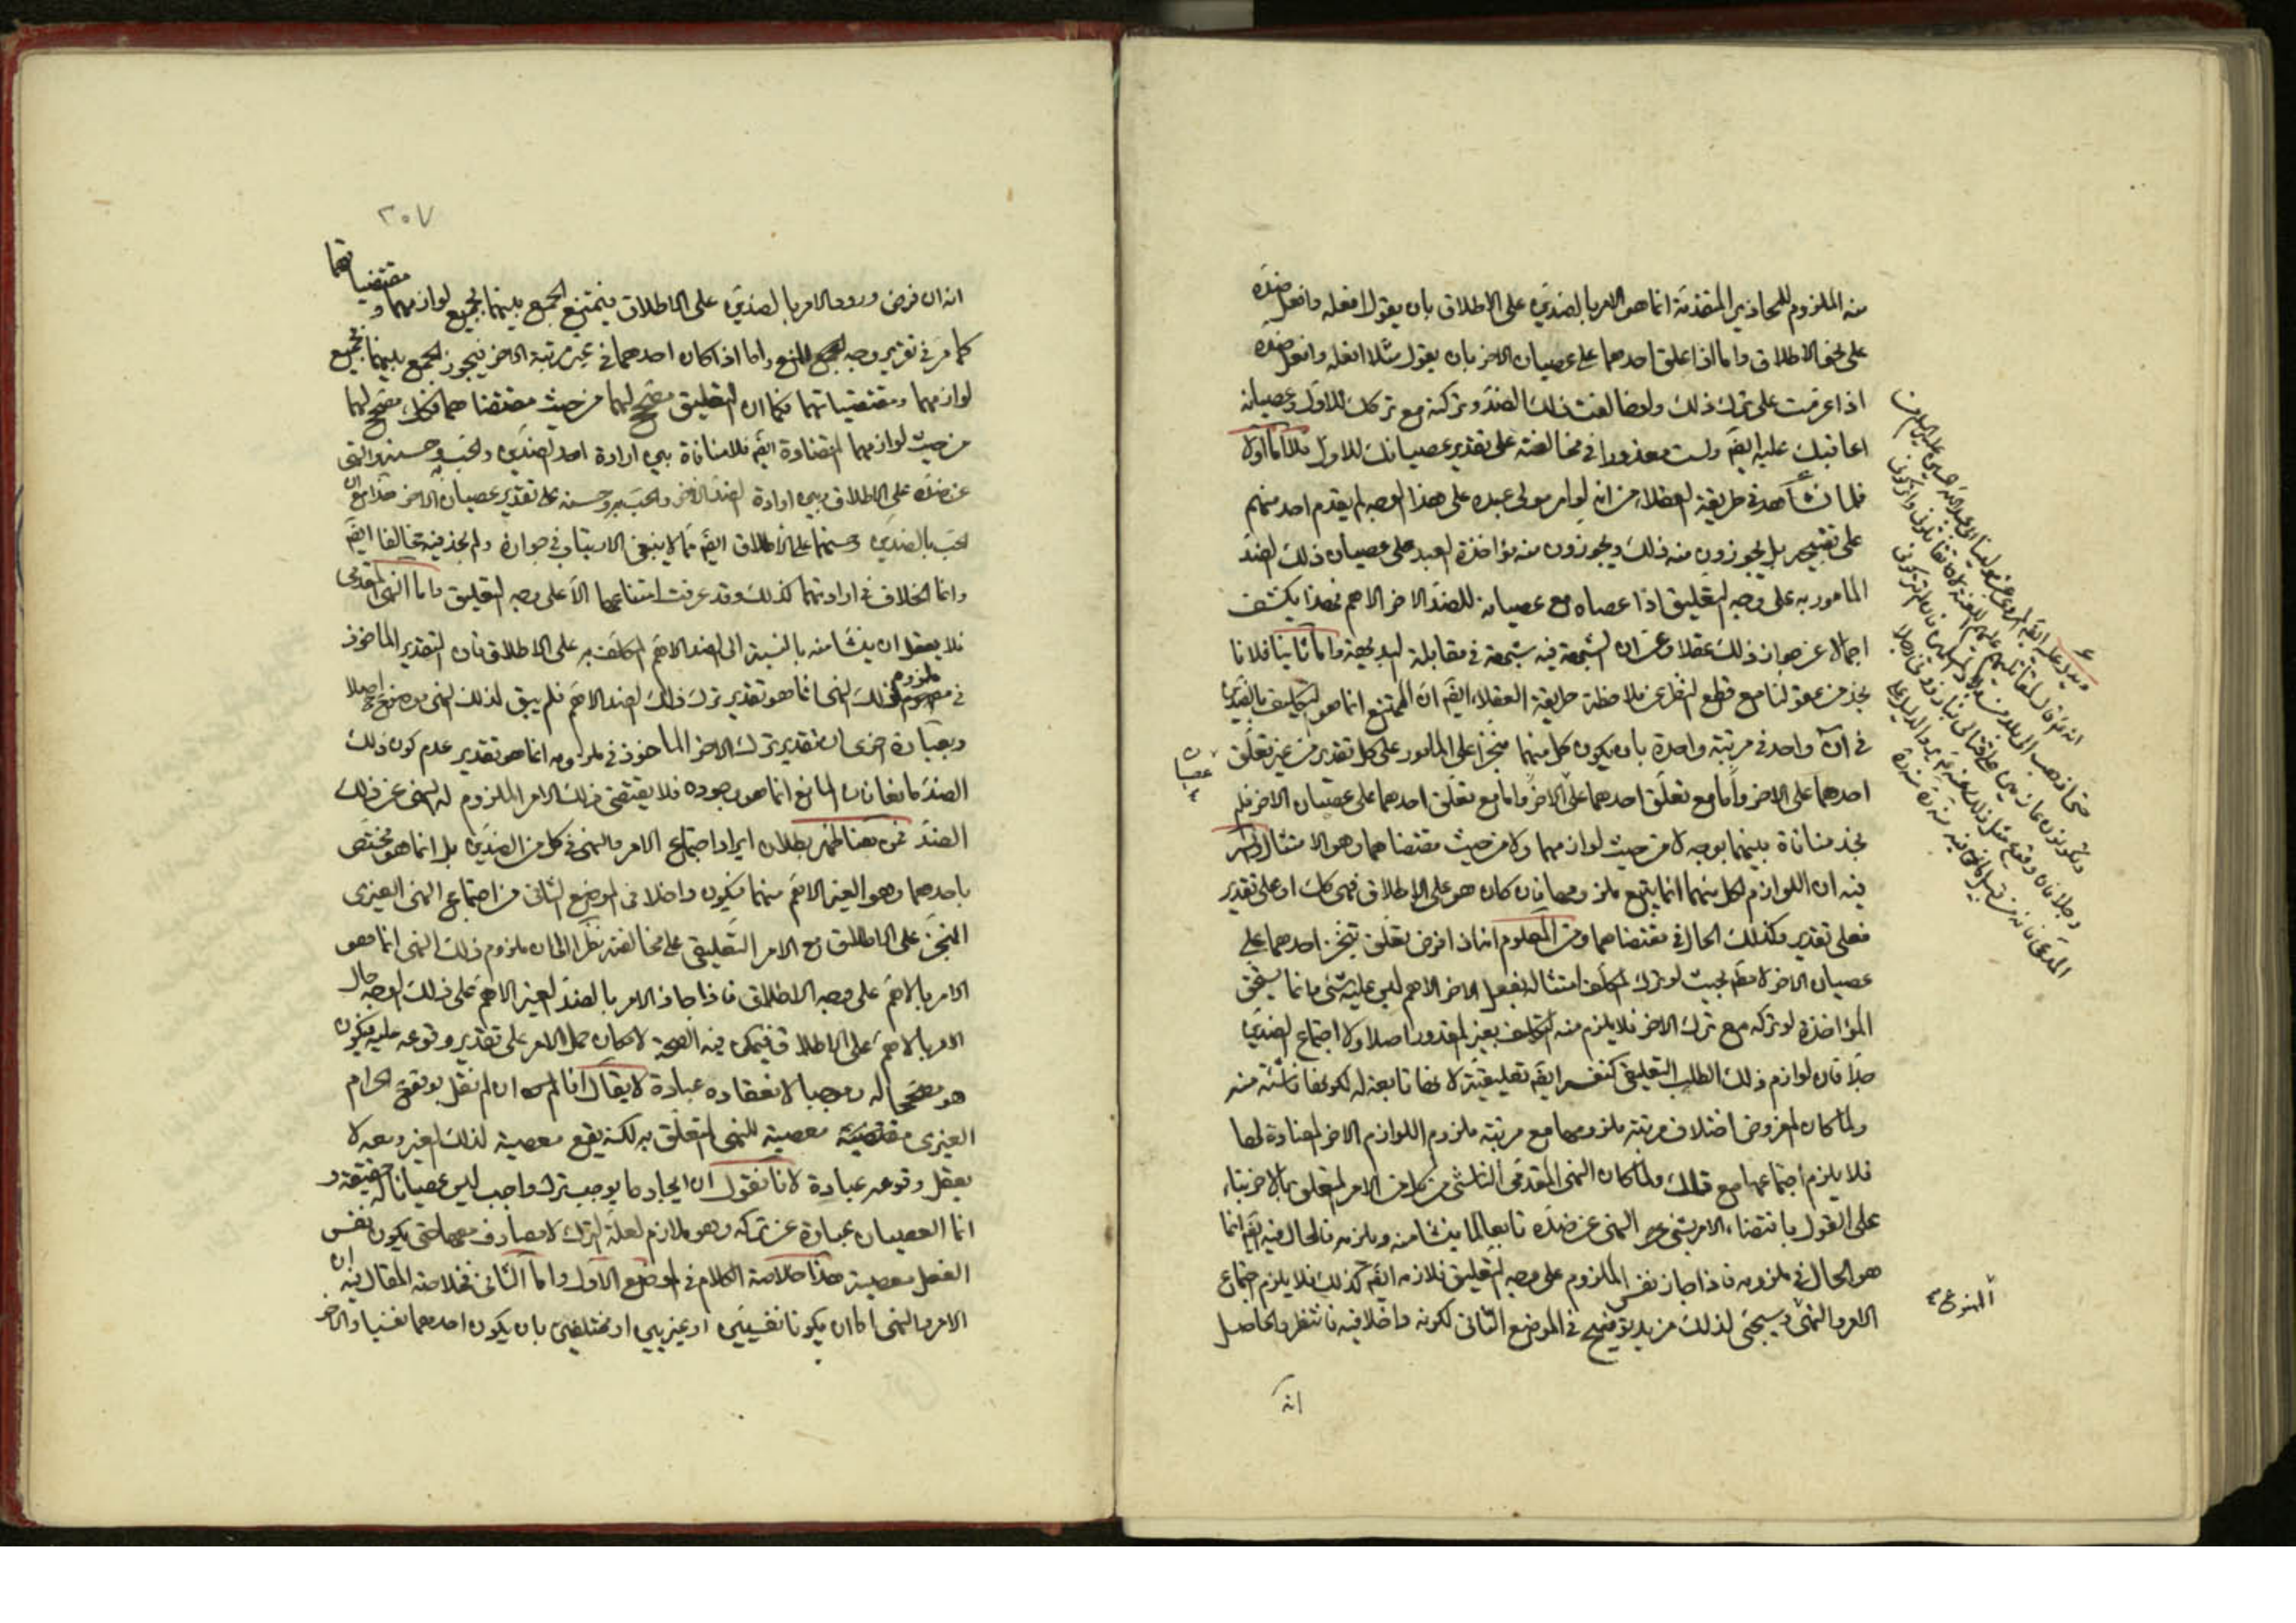 منه الملزوم للمحاذير المتقدمة انما هو الامر بالضدين على الاطلاق بان يقول افعله وافعل ضده
على نحو الاطلاق واما اذا علق احدهما على عصيان الاخر بان يقول مثلا افعله وافعل ضده
اذا عزمت على ترك ذلك ولو خالفت ذلك الضد وتركته مع تركك للاول وعصيانه
اعاقبك عليه ايضَ ولست معذورا فى مخالفته على تقدير عصيانك للاول فلا اما اولا
فلما نشاهد فى طريقة العقلاء من انه لو امر مولى عبده على هذا الوجه لم يقدم احد منهم
على تقبيحه بل يجوزون منه ذلك ويجوزون منه مؤاخذة العبد على عصيان ذلك الضد
المامور به على وجه التعليق اذا عصاه مع عصيانه للضد الاخر الاهم فهذا يكشف
اجمالا عن جواز ذلك عقلا وعن ان الشبهة فيه شبهة فى مقابلة البديهة واما ثانيا فلانا
نجد من عقولنا مع قطع النظر عن ملاحظة طريقة العقلاء ايضَ ان الممتنع انما هو التكليف بالضدين
فى آن واحد فى مرتبة واحدة بان يكون كل منهما منجزا على المامور على كل تقدير من غير تعلق
احدهما على الاخر واما مع تعلق احدهما على الاخر واما مع تعلق احدهما على عصيان الاخر فلم
نجد منافاة بينهما بوجه لا من حيث لوازمهما ولا من حيث مقتضاهما وهو الامتثال والسر
فيه ان اللوازم لكل منهما انما يتبع ملزومها فان كان هو على الاطلاق فهى كك او على تقدير
فعلى تقدير وكذلك الحال فى مقتضاهما ومن المعلوم انه اذا فرض تعلق تنجز احدهما على
عصيان الاخر لا مطَ بحيث لو ترك المكلف امتثاله بفعل الاخر الاهم ليس عليه شئ وانما يستحق
المؤاخذة لو تركه مع ترك الاخر فلا يلزم منه التكليف بغير المقدور اصلا ولا اجتماع الضدين
جدا فان لوازم ذلك الطلب التعليقى كنفسه ايضَ تعليقية لانها تابعة له لكونها ناشئة منه
ولما كان المفروض اختلاف مرتبة ملزومها مع مرتبة ملزوم اللوازم الاخر المضادة لها
فلا يلزم اجتماعها مع تلك ولما كان النهى المقدمى الناشئ من كل من الامر المتعلق بالاخر بناء
على القول باقتضاء الامر بشئ النهى عن ضده تابعا لما ينشا منه وملزمه فالحال فيه ايضَ انما
هو الحال فى ملزومه فاذا جاز نفس الملزوم على وجه التعليق فلازمه ايضَ كذلك فلا يلزم اجتماع
الامر والنهى وسيجئ لذلك مزيد توضيح فى الموضع الثانى لكونه داخلا فيه فانتظر والحاصل
عصيان
المنوعى
انه
٢٥٧
انه ان فرض ورود الامر بالضدين على الاطلاق فيمتنع الجمع بينهما بجميع لوازمهما و مقتضياتهما
كما مر فى تقرير وجه المنع واما اذا كان احدهما فى غير مرتبة الاخر فيجوز الجمع بينهما بجميع
لوازمهما ومقتضياتهما فكما ان التعليق مصحح لهما من حيث مقتضاهما فكك مصحح لهما
من حيث لوازمهما المتضادة ايضَ فلا منافاة بين ارادة احد الضدين والحب وحسنه والنهى
عن ضده على الاطلاق وبين ارادة الضد الاخر والحب به وحسنه على تقدير عصيان الاخر هذا مع ان
الحب بالضدين وحسنهما على الاطلاق ايضَ مما لا ينبغى الارتياب فى جوازه ولم نجد فيه مخالفا ايضَ
وانما الخلاف فى ارادتهما كذلك وقد عرفت امتناعهما الا على وجه التعليق واما النهى المقدمى
فلا يعقل ان ينشا منه بالنسبة الى الضد الاهم المكلف به على الاطلاق فان التقدير الماخوذ
فى ملزوم ذلك النهى انما هو تقدير ترك ذلك الضد الاهم فلم يبق لذلك النهى موضوع ح اصلا
وبعبارة اخرى ان تقدير ترك الاخر الماخوذ فى ملزومه انما هو تقدير عدم كون ذلك
الضد مانعا فان المانع انما هو وجوده فلا يقتضى ذلك الامر الملزوم له النهى عن ذلك
الضد فمن هنا ظهر بطلان ايراد اجتماع الامر والنهى فى كل من الضدين بل انما هو مختص
باحدهما وهو الغير الاهم منهما فيكون داخلا فى الموضع الثانى من اجتماع النهى الغيرى
المنجز على الاطلاق مع الامر التعليقى على مخالفته نظرا الى ان ملزوم ذلك النهى انما هو
الامر بالاهم على وجه الاطلاق فاذا جاز الامر بالضد الغير الاهم على ذلك الوجه حال
الامر بالاهم على الاطلاق فيمكن فيه الصحة لامكان حمل الامر على تقدير وقوعه عليه فيكون
هو مصححا له وموجبا لانعقاده عبادة لا يقال انا لو ان لم نقل بوقوع الحرام
الغيرى معصية للنهى المتعلق به لكنه يقع معصية لذلك الغير ومعه لا
يعقل وقوعه عبادة لانا نقول ان ايجاد ما يوجب ترك واجب ليس عصيانا له حقيقة و
انما العصيان عبارة عن تركه وهو ملازم لعلة الترك لا مصادف معها حتى يكون نفس
الفعل معصية هذا خلاصة الكلام فى الموضع الاول واما الثانى فخلاصة المقال فيه ان
الامر والنهى اما ان يكونا نفسيين او غيريين او مختلفين بان يكون احدهما نفسيا والاخر